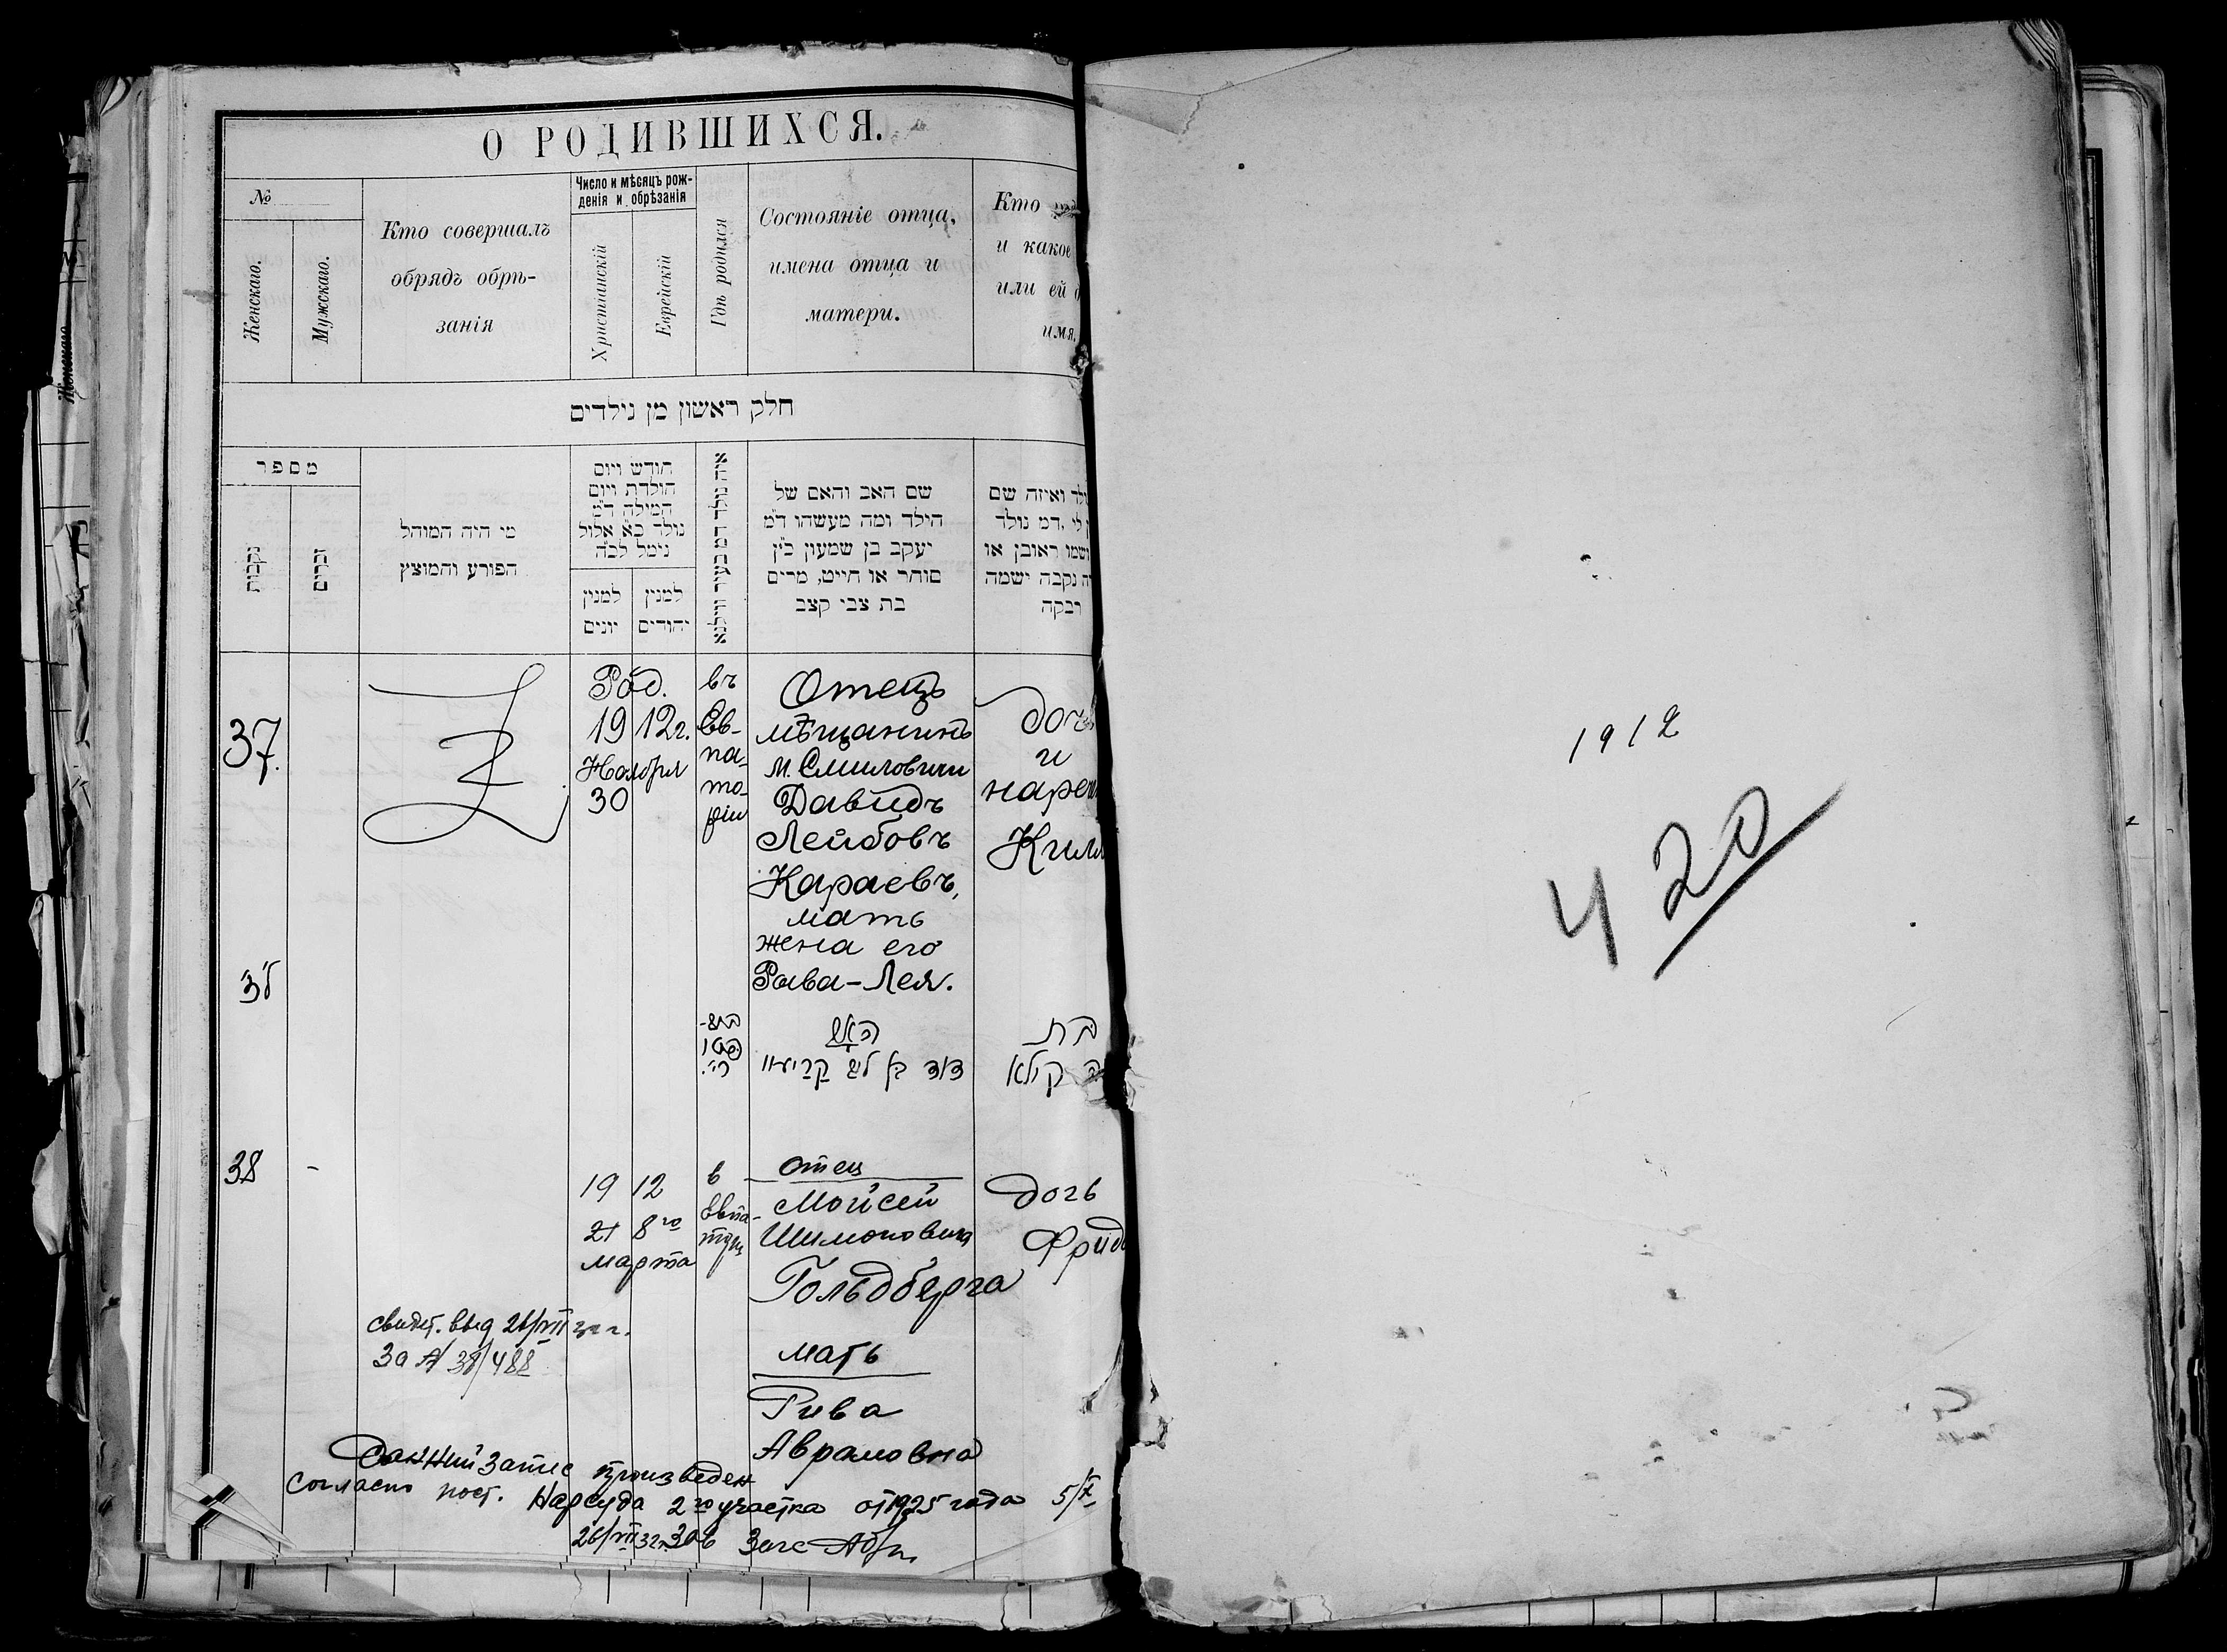 О РОДИВШИХСЯ.
№
Женскаго.
Мужскаго.
Кто совершалъ
обрядъ обрѣ-
занія
Число и мѣсяцъ рож-
денія и обрѣзанія
Христіанскій
Еврейскій
Гдѣ родился
Состояніе отца,
имена отца и
матери.
Кто
и какое
или ей
имя.
חלק ראשון מן נולדים
מספר
נקבות
זכרים
מי היה המוהל
הפורע והמוצץ
חודש ויום
הולדת ויום
המילה ד״מ
נולד כ״א אלול
נימל לכ״ה
למנין
יונים
למנין
יהודים
איה נולד דמ בעיר ווילנא
שם האב והאם של
הילד ומה מעשהו ד״מ
יעקב בן שמעון כ״ץ
סוחר או חייט, מרים
בת צבי קצב
ואיזה שם
לי, דמ נולד
ושמו ראובן או
נקבה ישמה
רבקה
37.
Род.
19 12 г.
Ноября
30
въ
Ев-
па-
то-
ріи
Отецъ
мѣщанинъ
м. Смиловичи
Давидъ
Лейбовъ
Караевъ,
мать
жена его
Рава-Лея.
дочь
и
нареч
Килл
האב
דוד בן לייב קַרַיעוו
בת
קילא
38
-
19 12
21 8го
марта
в
Евпа-
тории
отец
Мойсей
Шимонович
Гольдберга
мать
Рива
Аврамовна
дочь
Фрид
свидет. выд 26/VII 32 г.
за № 38/488
Данный запис произведен
согласно пост. Нарсуда 2го участка от 1925 года 5/X
26/VII 32г. Зав Загс
1912
420